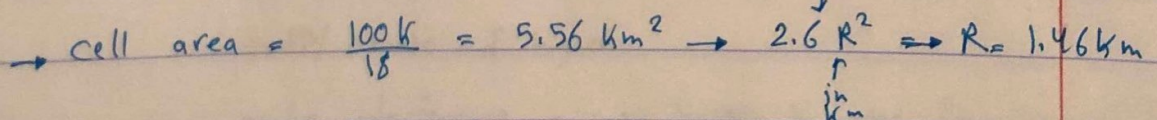 → cell area = 100K/18 = 5.56 Km² → 2.6 R² ⇒ R = 1.46 Km
↑
in
Km